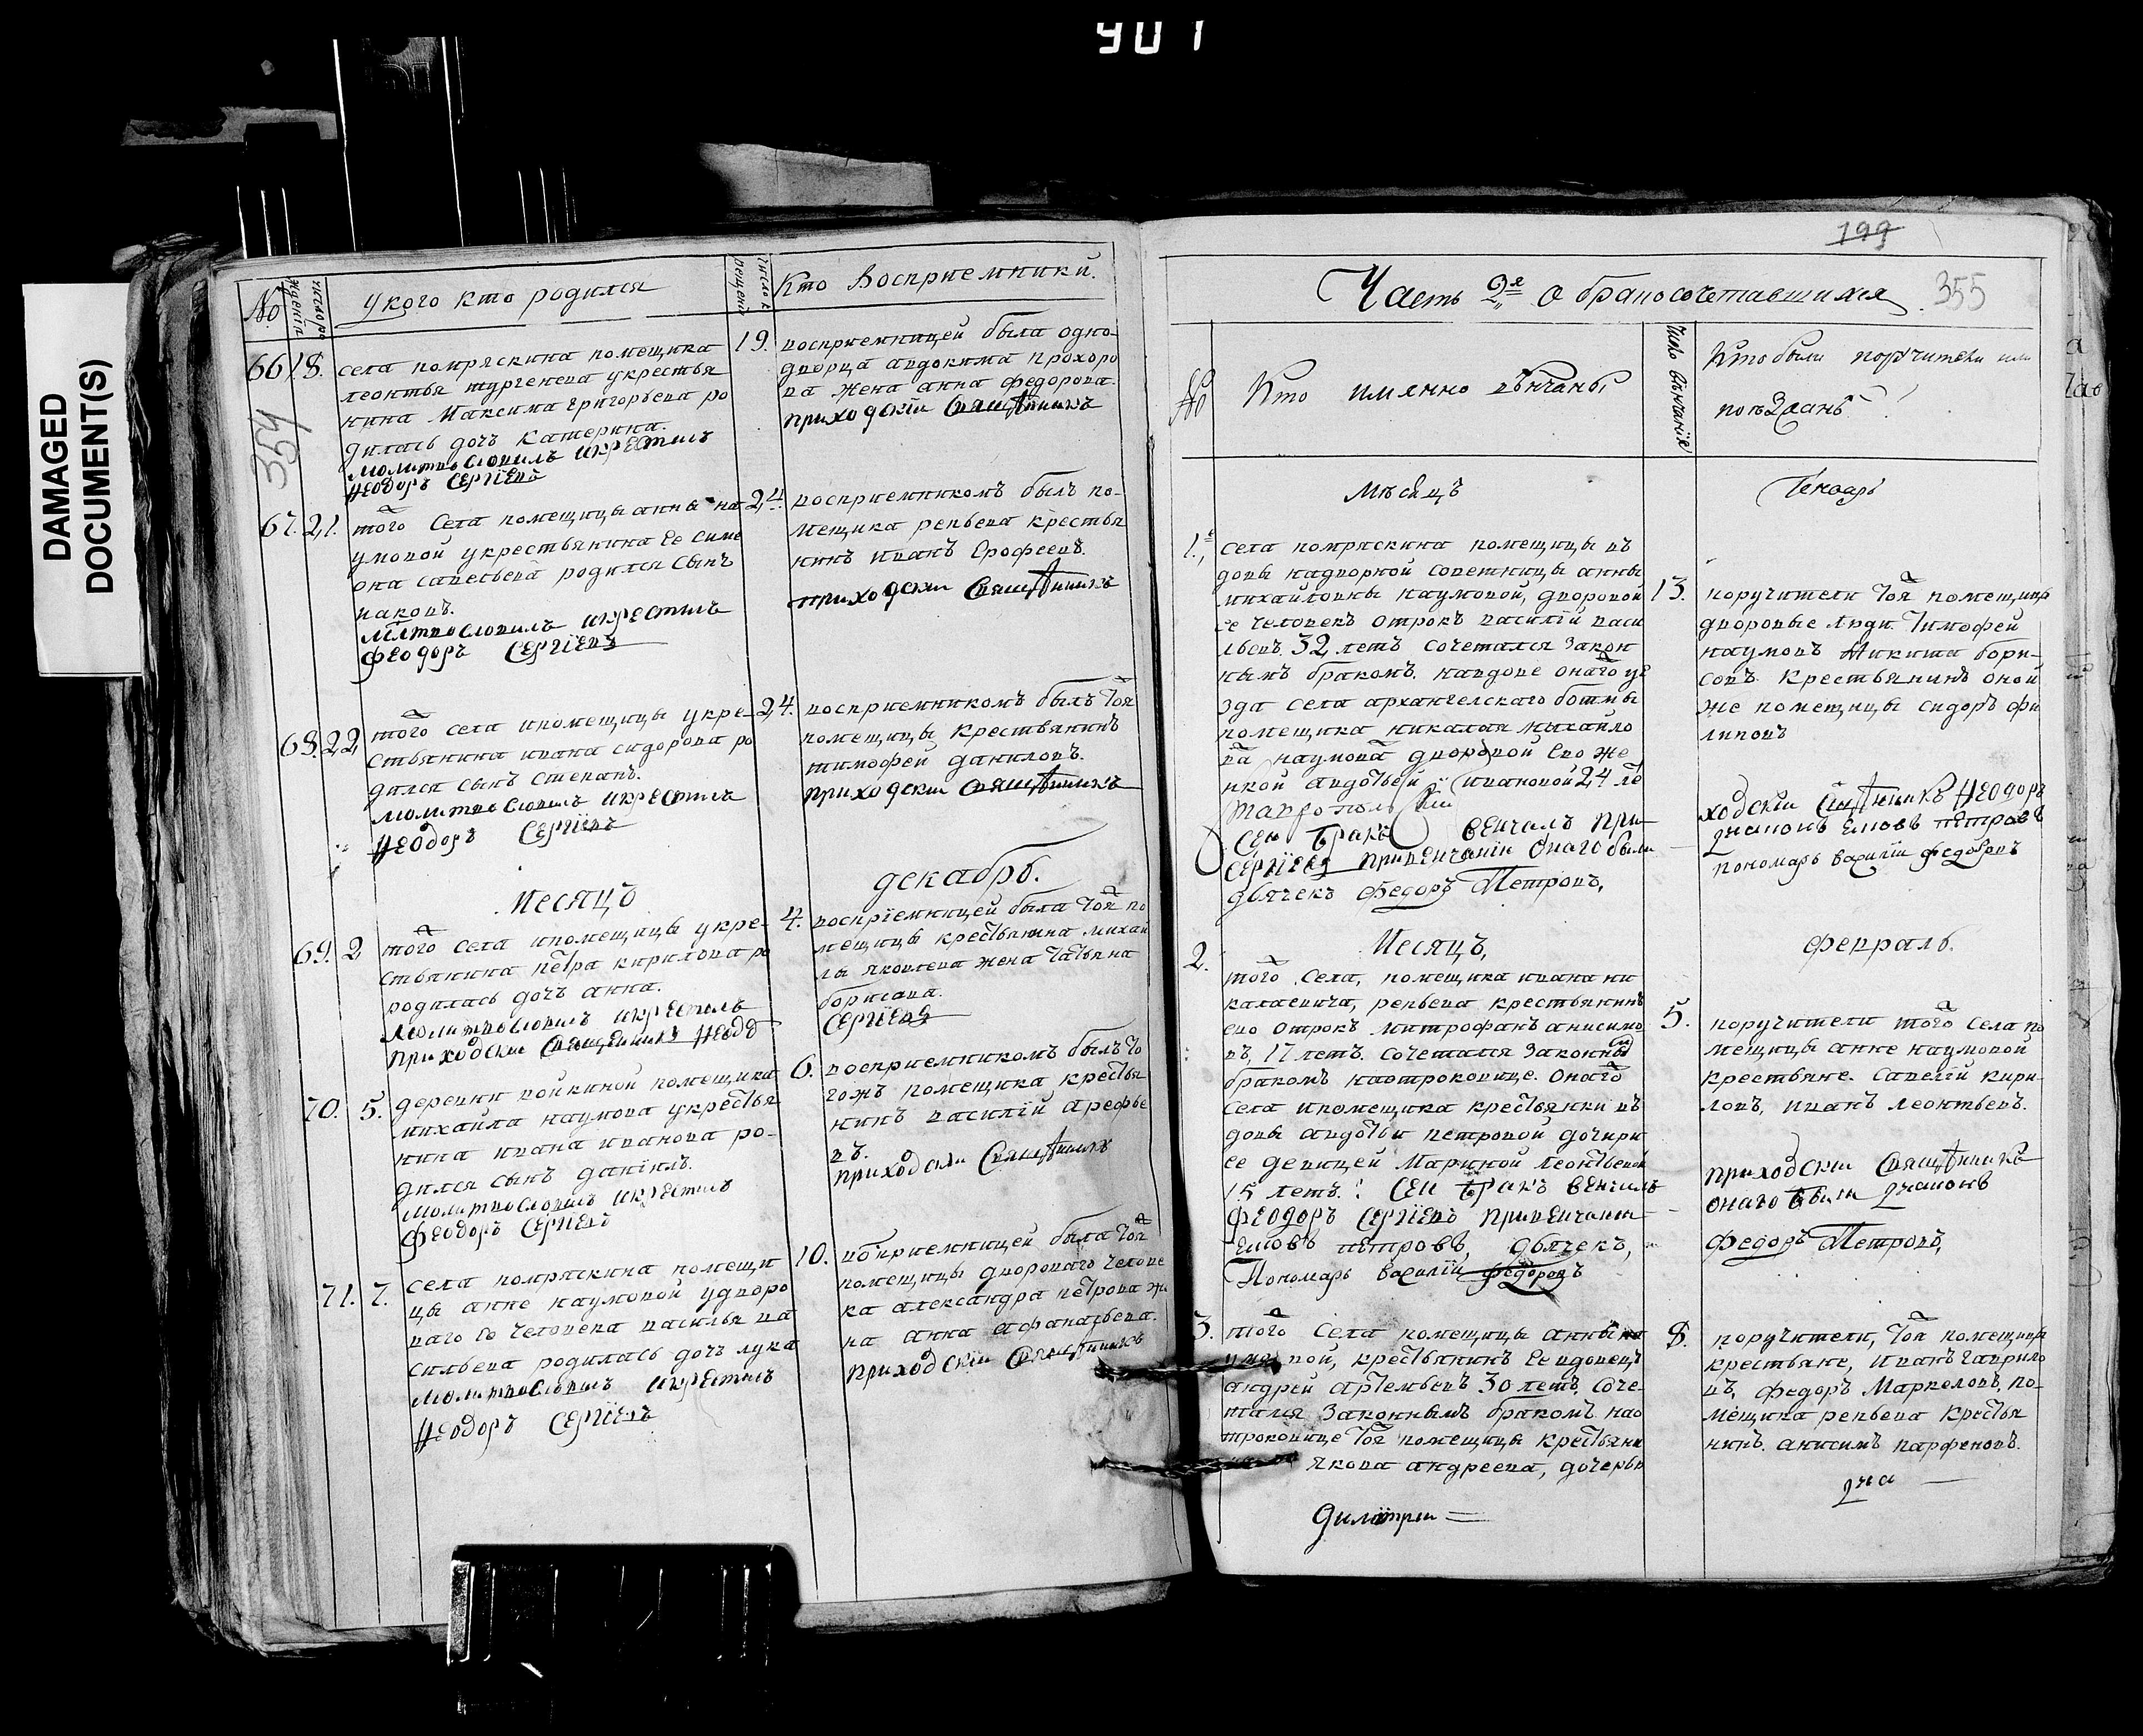 901
DAMAGED
DOCUMENT(S)
No
число рождения
у кого кто родился
число крещения
Кто Восприемники.
354
66
18.
села помряскина помещика
леонтья тургенева укрестья
нина Максима григорьева ро
дилась дочь катерина.
молитвословилъ икрестилъ
Феодоръ Сергїевъ
19.
восприемницей была одно-
дворца авдокима прохоро
ва жена анна федорова.
приходскїи Священникъ
67.
21.
того Села помещицы анны на
умовой укрестьянина Ее симе
она савельева родился Сынъ
иаковъ.
млтвословилъ икрестилъ
Феодоръ Сергїевъ
24.
восприемникомъ былъ по-
мещика репьева крестья
нинъ иванъ Ерофеевъ.
приходскии Священникъ
68.
22
того села ипомещицы укре-
стьянина ивана сидорова ро
дился сынъ степанъ.
молитвословилъ икрестилъ
Феодоръ Сергїевъ
24.
восприемникомъ былъ тоя
помещицы крестьянинъ
тимофей даниловъ.
приходскии Священникъ
Месяцъ
декабрь.
69.
2
того села ипомещицы укре-
стьянина петра кирилова ро
родилась дочь анна.
Молитвословилъ икрестилъ
приходскии Священникъ Феодо
4.
воспрїемницей была тоя по
мещицы крестьянина михай
лы яковлева жена татьяна
борисова.
Сергїевъ
70.
5.
деревни войкиной помещика
михайла наумова укрестья
нина ивана иванова ро-
дился сынъ данїилъ.
молитвословилъ икрестилъ
Феодоръ Сергїевъ
6.
восприемникомъ былъ то
гожъ помещика крестья
нинъ василїй арефье
въ.
приходскии Священникъ
71.
7.
села помряскина помещи
цы анне наумовой удворо
ваго Ее человека василья ва
сильева родилась дочь лука
молитвословилъ икрестилъ
Феодоръ Сергїевъ
10.
восприемницей была тоя
помещицы двороваго челове
ка александра петрова же
на анна афанасьева.
приходскїи Священникъ
199
355
Часть 2я О бракосочетавшихся
No
Кто имянно венчаны
число венчания
Кто были поручители или
поезжаны
Месяцъ
Генварь
1.е
села помряскина помещицы въ
довы надворной советницы анны
михайловны наумовой, дворовой
ее человекъ отрокъ василїй васи
льевъ 32 летъ сочетался закон
нымъ бракомъ. навдове онаго уе
зда села архангелскаго ботмы
помещика николая михайло
ва наумова дворовой Ево же
нкой авдотьей ивановой 24 ле
Сеи бракъ венчалъ при-
Сергїевъ привенчанїи Онаго были
дьячекъ Федоръ Петровъ,
13.
поручители тоя помещицы
дворовые люди Тимофей
наумовъ Микита бори-
совъ. крестьянинъ оной
же помещицы сидоръ фи
липовъ
ходскїи Священникъ Феодоръ
дїаконъ Iяковъ петровъ
пономарь василїи федоровъ
Месяцъ,
февраль.
2.
того Села, помещика ивана ни
калаевича, репьева крестьянинъ
ево отрокъ митрофанъ анисимо
въ, 17 летъ. сочетался законны
бракомъ наотроковице. Онаго
села ипомещика крестьянки въ
довы авдотьи петровой дочири
ее девицей Мариной леонтьевой
15 летъ. Сеи бракъ венчалъ
Феодоръ Сергїевъ привенчанїи
Iяковъ петровъ, дьячекъ,
Пономарь василїи федоровъ
5.
поручители того села по
мещицы анне наумовой
крестьяне. савелїй кири-
ловъ, иванъ леонтьевъ.
приходскии Священникъ
онаго были дїаконъ
Федоръ Петровъ,
3.
того Села помещицы анны на
умовой, крестьянинъ Ее вдовецъ
андрей артемьевъ 30 летъ, соче-
тался Законнымъ бракомъ нао
троковице тоя помещицы крестьяни
якова андреева, дочерью
8.
поручители, тоя помещицы
крестьяне, иванъ гаврило
въ, федоръ Маркеловъ, по-
мещика репьева крестья
нинъ. анисимъ парфеновъ.
Димитрии